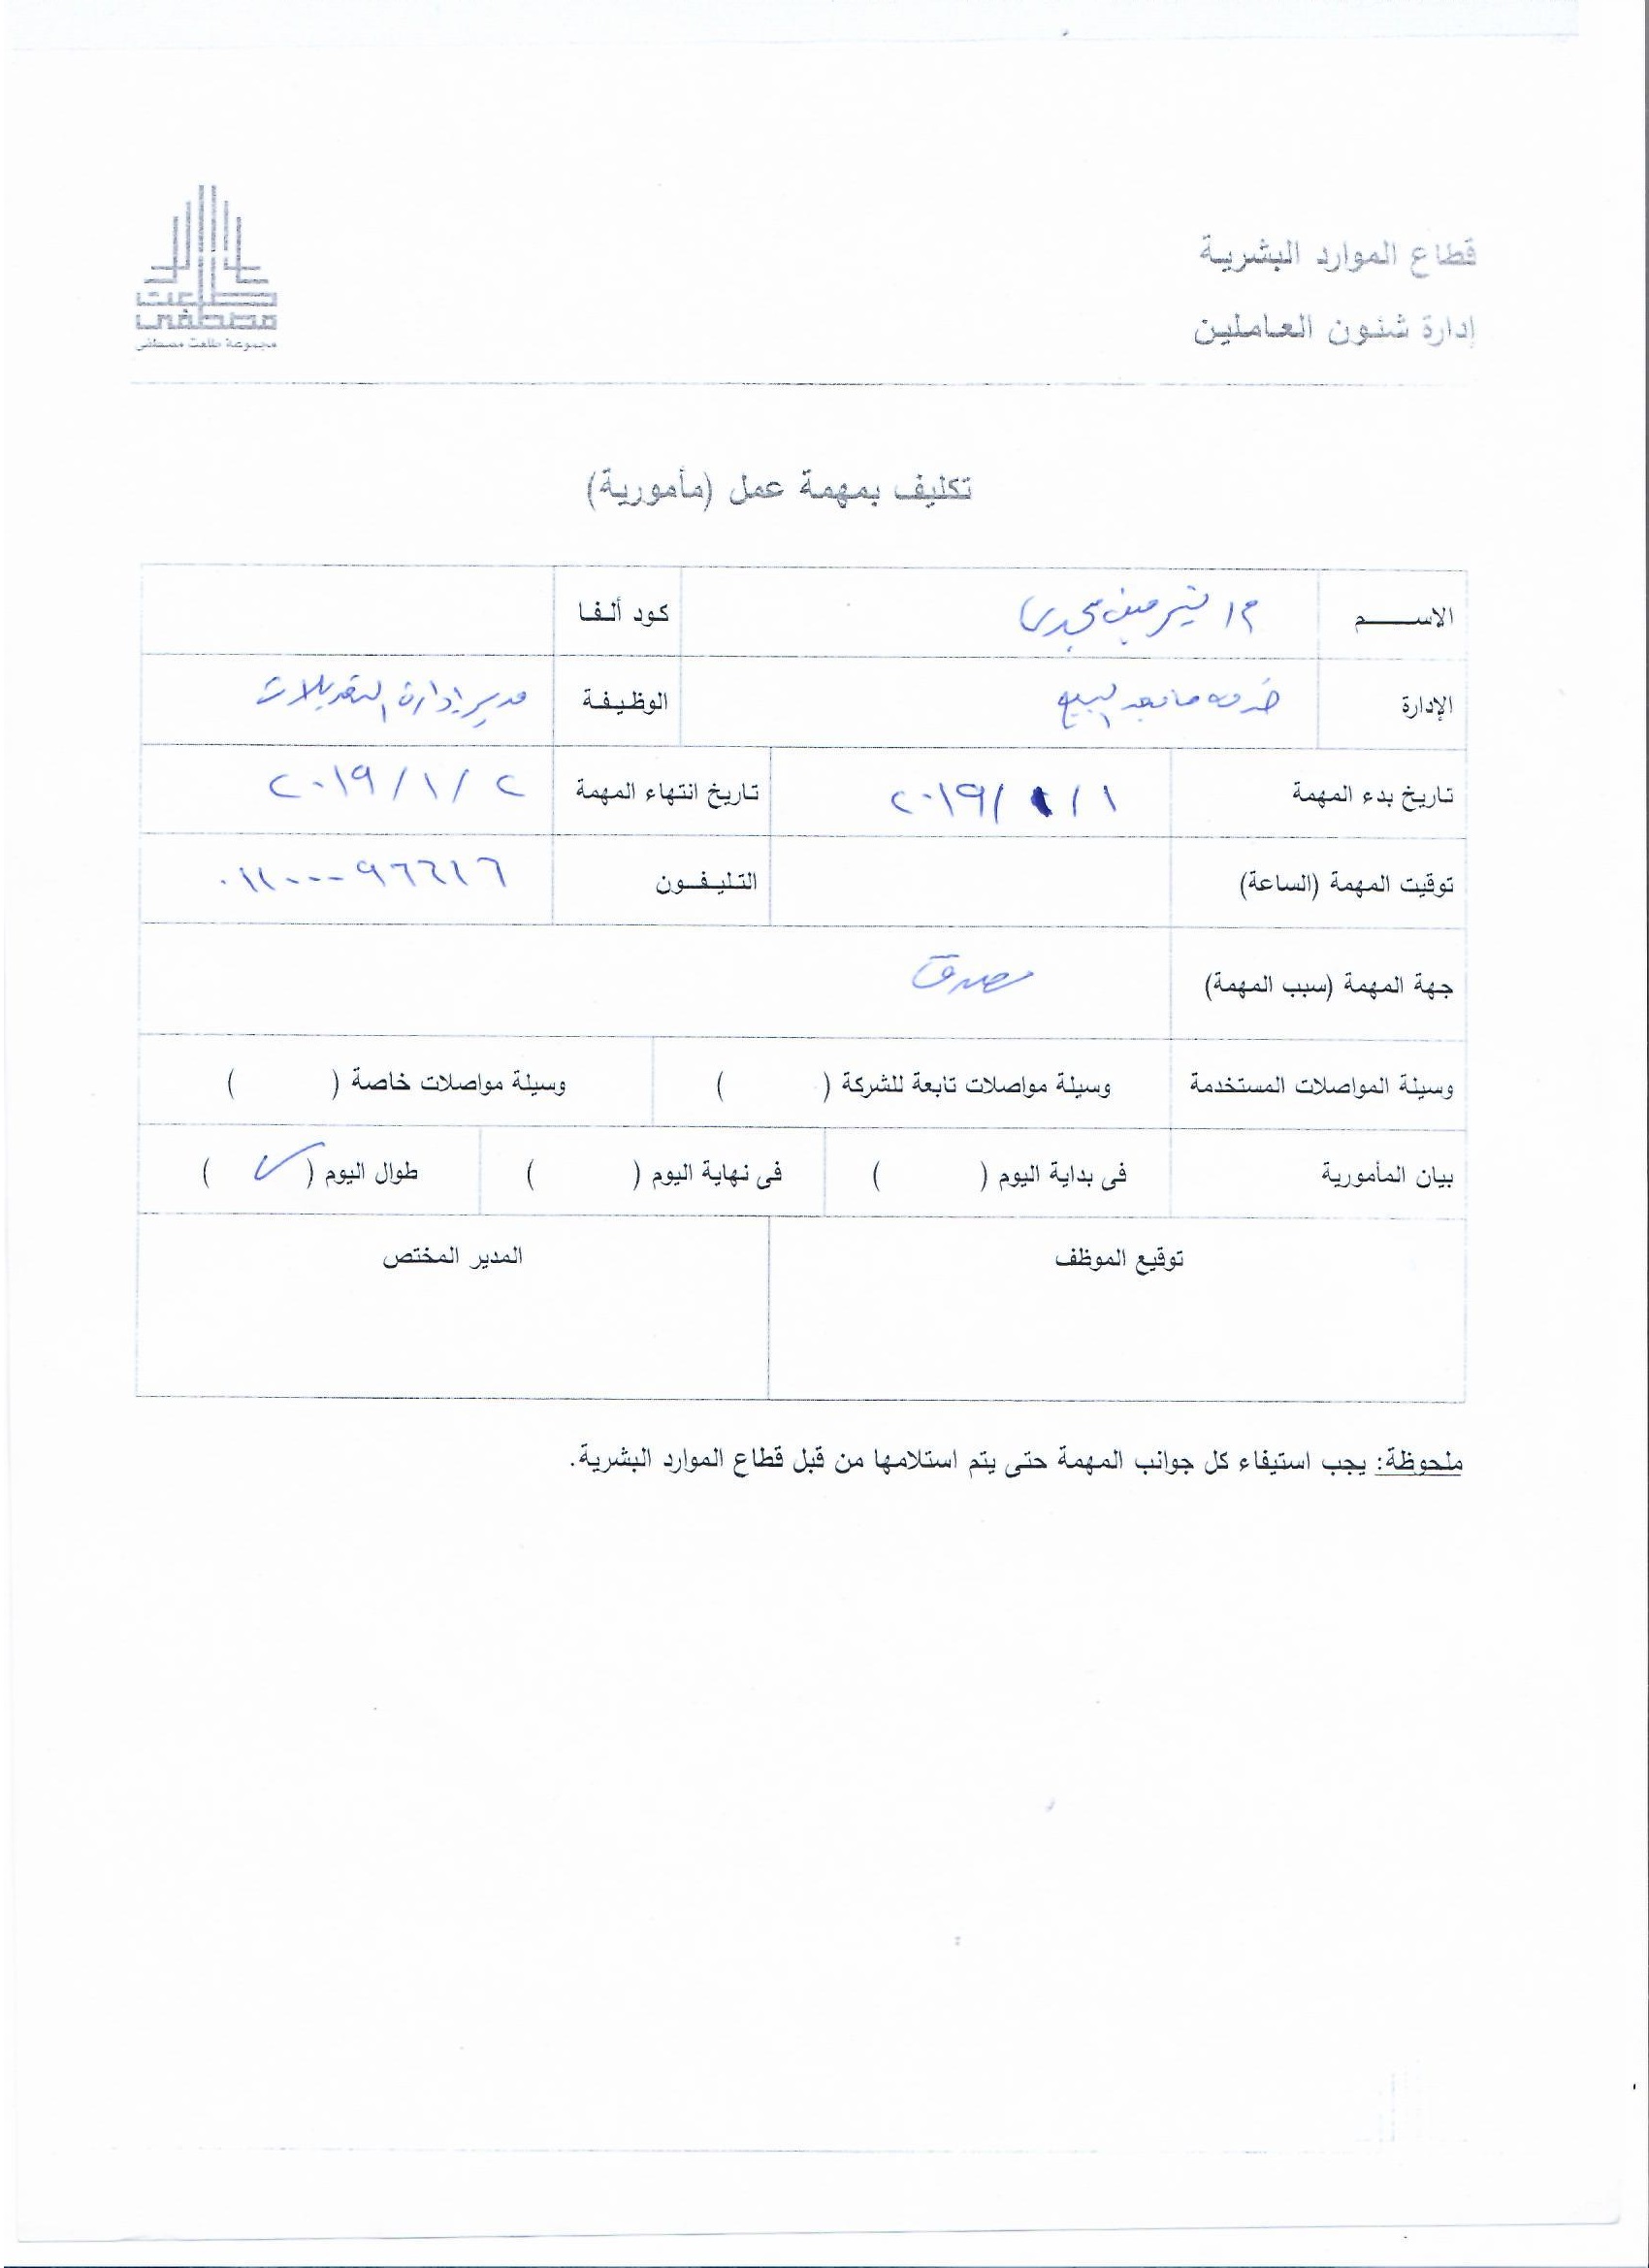 قطاع الموارد البشرية
إدارة شئون العاملين
طلعت
مصطفى
مجموعة طلعت مصطفى
تكليف بمهمة عمل (مأمورية)
الاســـــم م/ نيرمين مجدى كود ألفا
الإدارة خدمه ما بعد البيع الوظيفة مدير إدارة التعديلات
تاريخ بدء المهمة ١ / ١ / ٢٠١٩ تاريخ انتهاء المهمة ٢ / ١ / ٢٠١٩
توقيت المهمة (الساعة) التليفون
جهة المهمة (سبب المهمة)
وسيلة المواصلات المستخدمة وسيلة مواصلات تابعة للشركة ( ) وسيلة مواصلات خاصة ( )
بيان المأمورية فى بداية اليوم ( ) فى نهاية اليوم ( ) طوال اليوم ( ✓ )
توقيع الموظف المدير المختص
ملحوظة: يجب استيفاء كل جوانب المهمة حتى يتم استلامها من قبل قطاع الموارد البشرية.